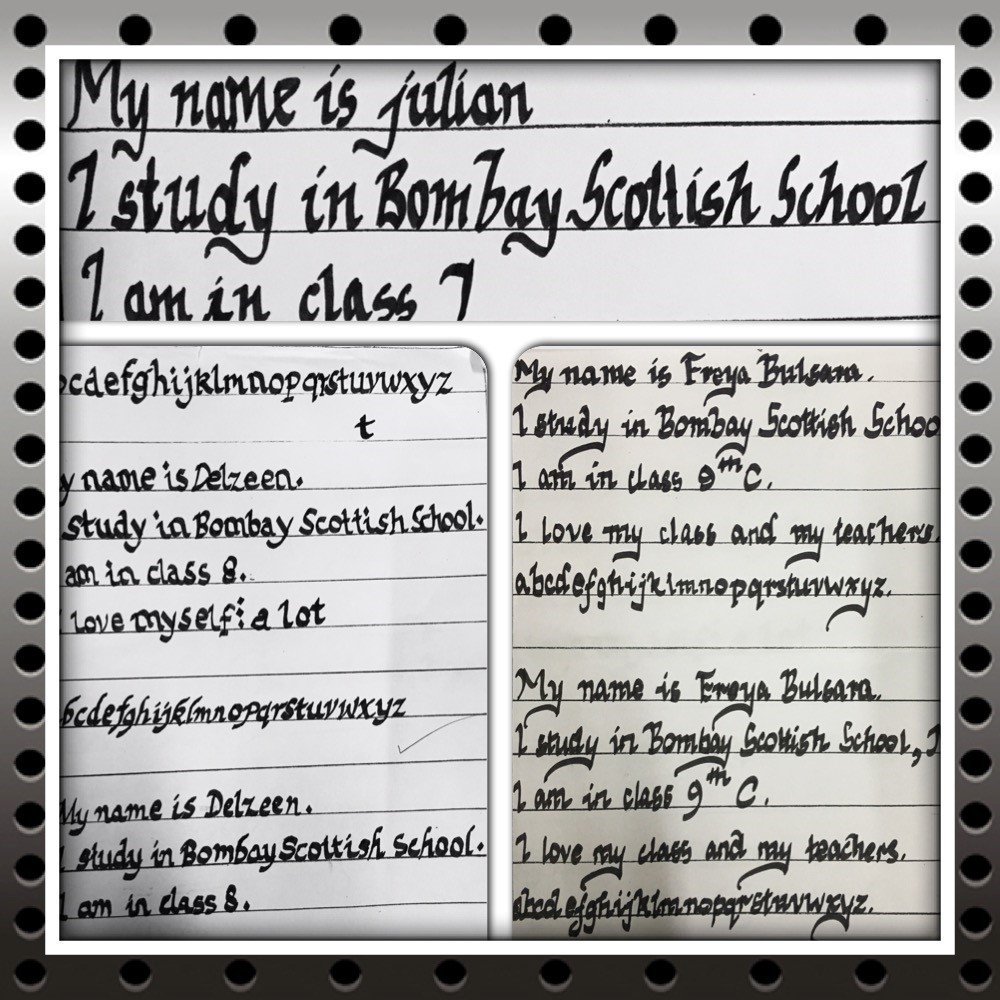 My name is julian
I study in Bombay Scottish School
I am in class 7
bcdefghijklmnopqrstuvwxyz
t
y name is Delzeen.
study in Bombay Scottish School.
am in class 8.
I love myself: a lot
bcdefghijklmnopqrstuvwxyz
My name is Delzeen.
I study in Bombay Scottish School.
I am in class 8.
My name is Freya Bulsara.
I study in Bombay Scottish Schoo
I am in class 9th C.
I love my class and my teachers.
abcdefghijklmnopqrstuvwxyz.
My name is Freya Bulsara.
I study in Bombay Scottish School,
I am in class 9th C.
I love my class and my teachers.
abcdefghijklmnopqrstuvwxyz.